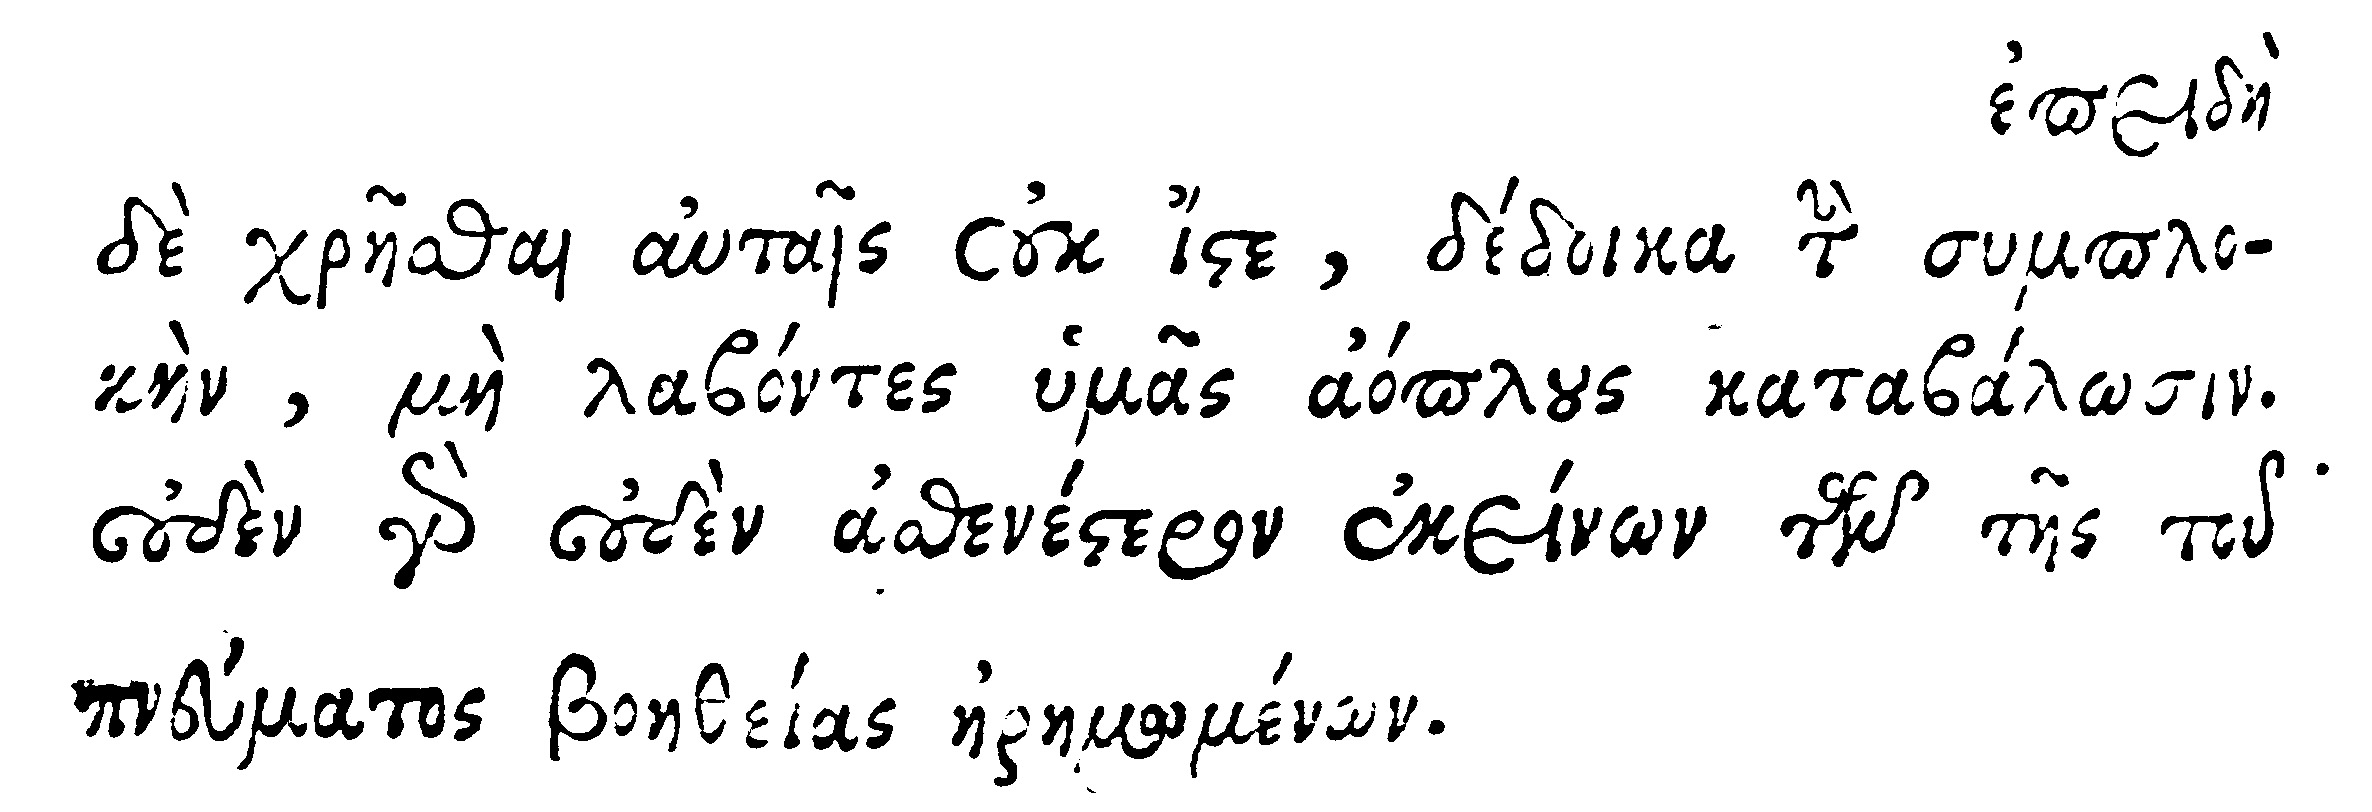 ἐπειδὴ
δὲ χρῆσθαι αὐταῖς οὐκ ἴστε, δέδοικα τὴν συμπλο-
κὴν, μὴ λαβόντες ὑμᾶς ἀόπλους καταβάλωσιν.
οὐδὲν γὰρ οὐδὲν ἀσθενέστερον ἐκείνων τῶν τῆς τοῦ
πνεύματος βοηθείας ἠρημωμένων.